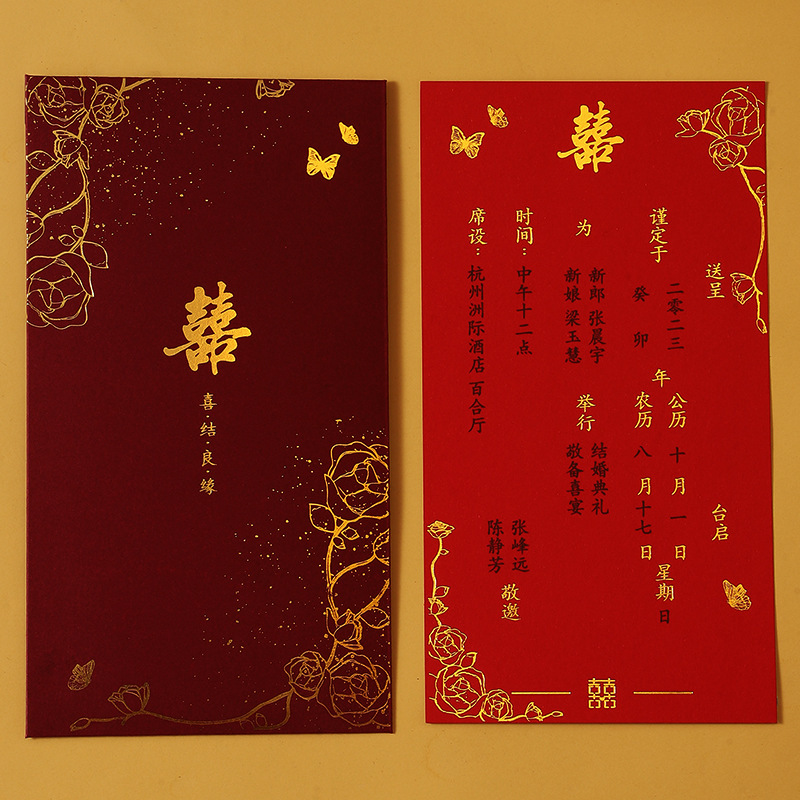 囍
喜·结·良·缘
囍
送呈 台启
谨定于 二零二三 年 公历 十 月 一 日 星期 日
癸卯 农历 八 月 十七 日
为 新郎 张晨宇 举行 结婚典礼
新娘 梁玉慧 敬备喜宴
时间：中午十二点
席设：杭州洲际酒店 百合厅
张峰远
陈静芳
敬邀
囍